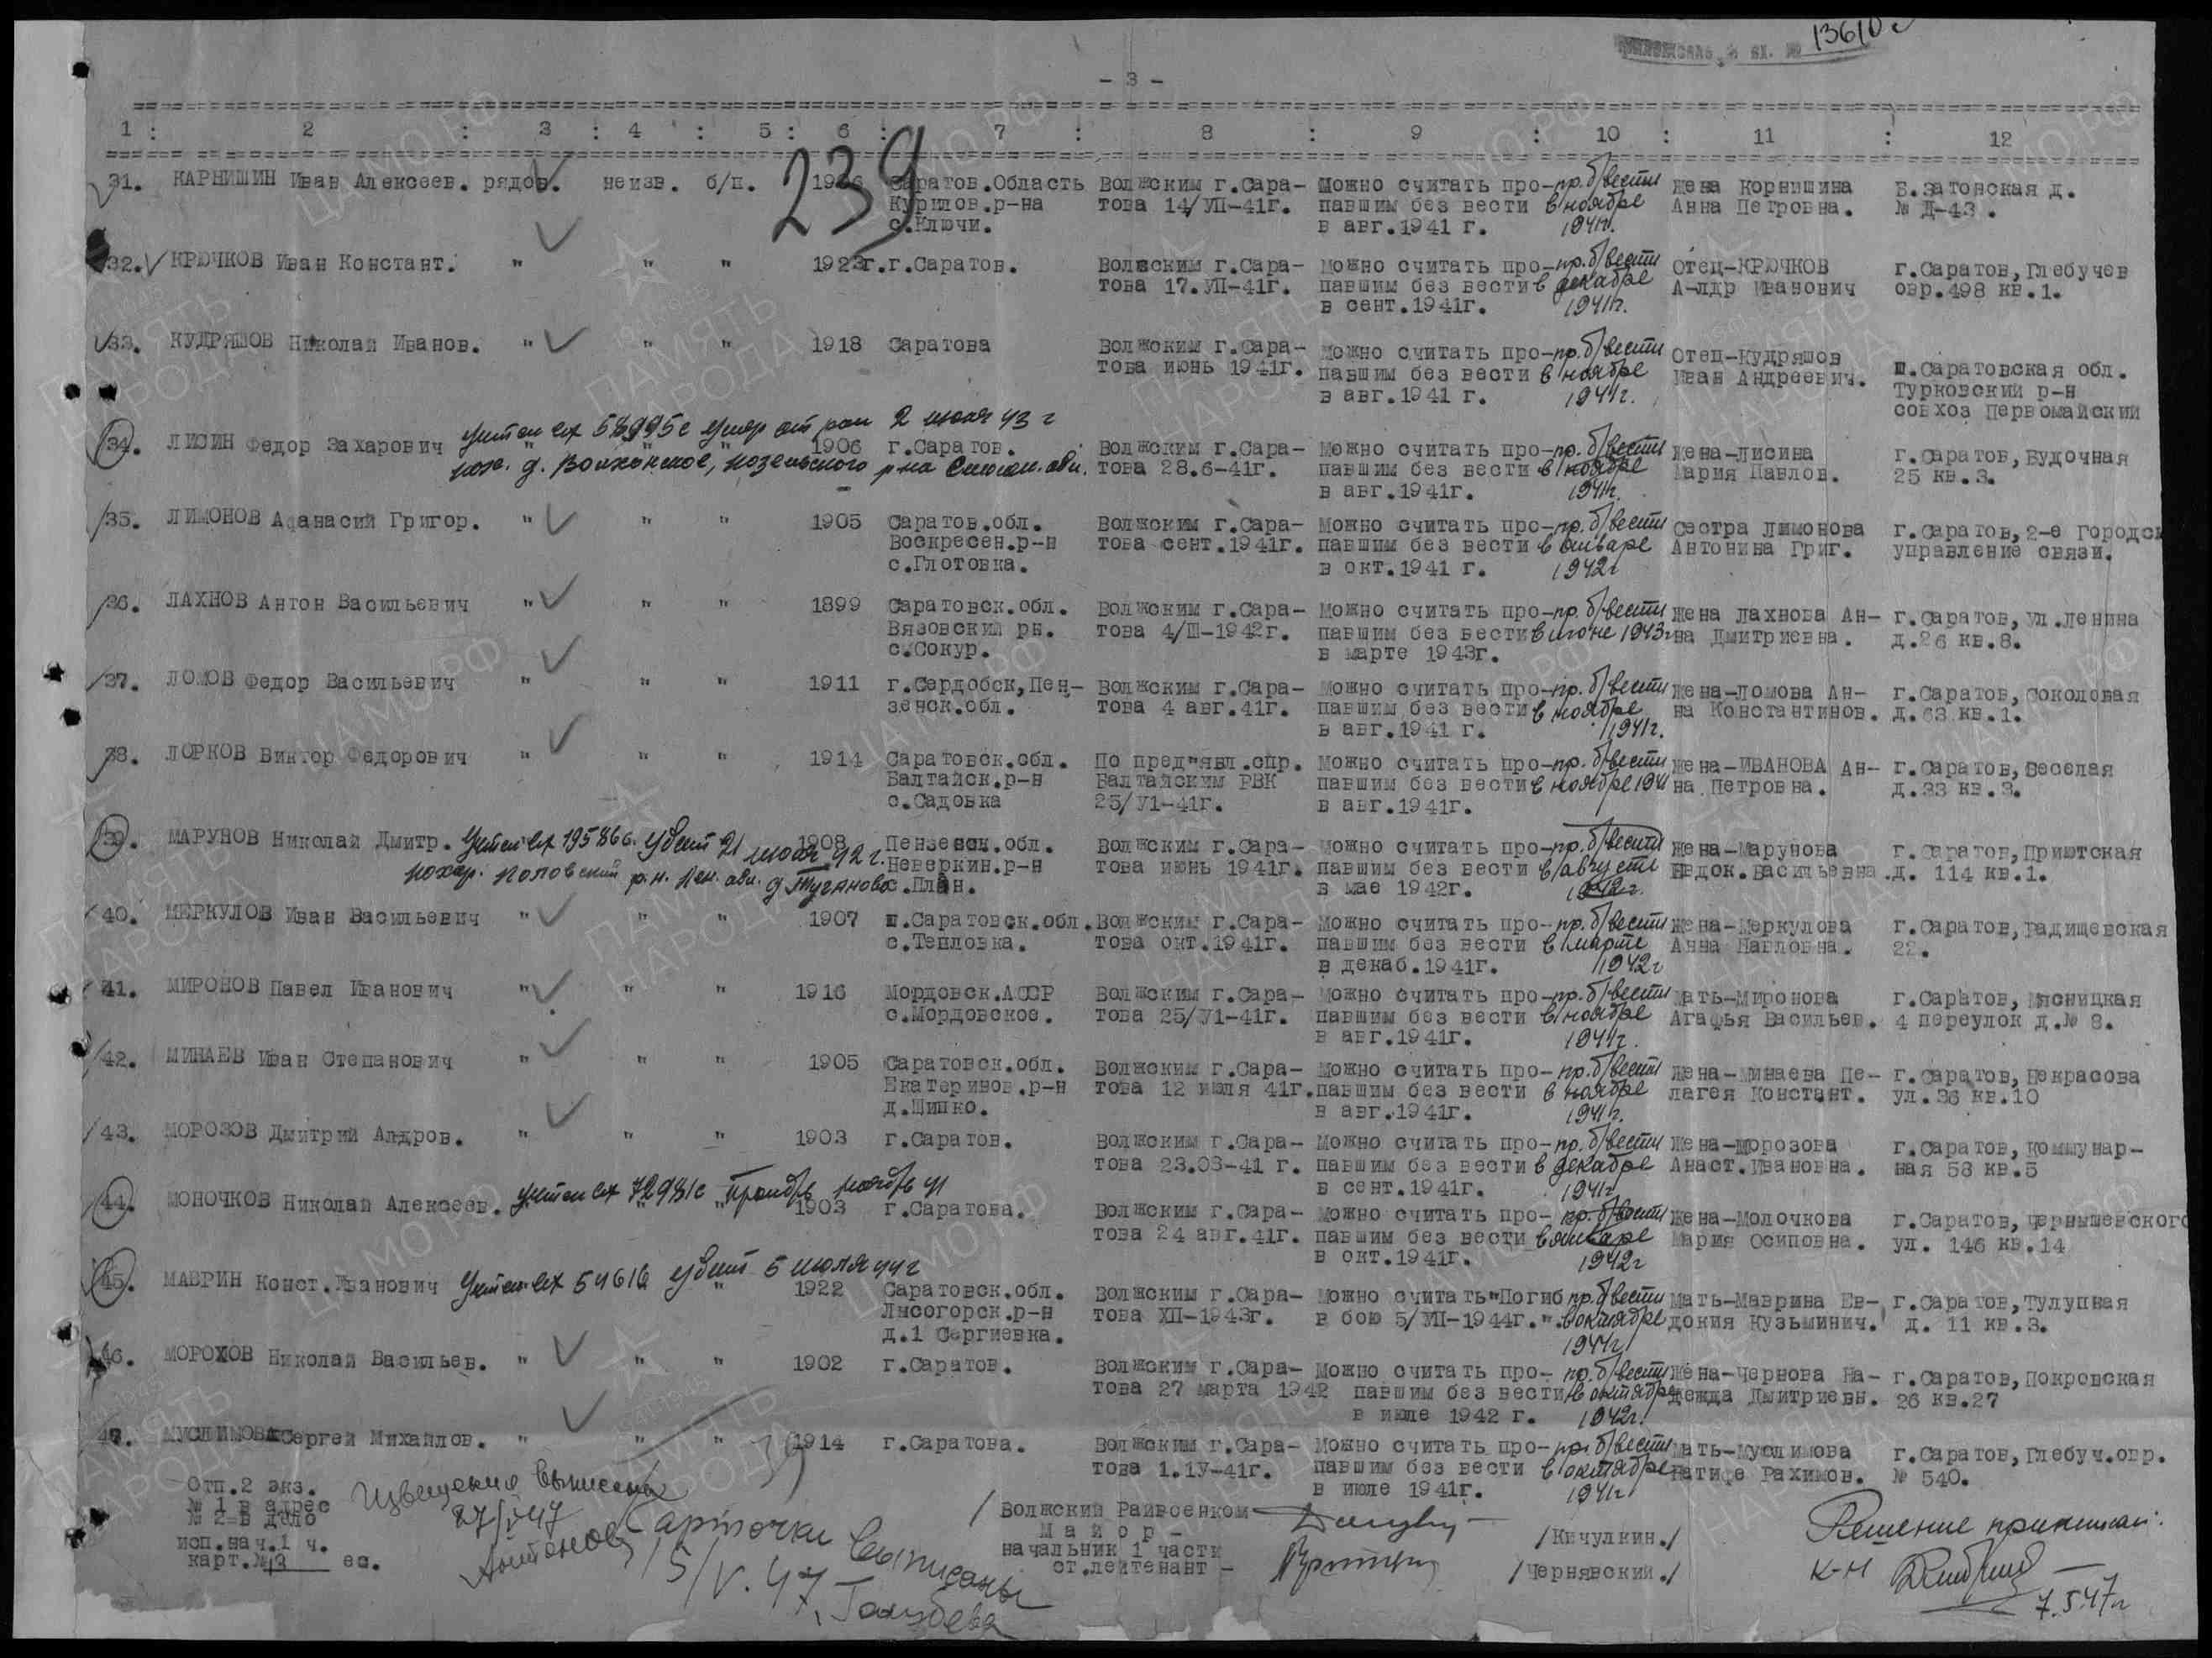 вх. № 13610с
- 3 -
1 : 2 : 3 : 4 : 5 : 6 : 7 : 8 : 9 : 10 : 11 : 12
239
31. КАРНИШИН Иван Алексеев. рядов. неизв. б/п. 1906 Саратов.Область Волжским г.Сара- Можно считать про- пр. б/вести Жена Корнишина Б.Затонская д.
Курилов.р-на това 14/УП-41г. павшим без вести в ноябре Анна Петровна. № Д-43 .
с.Ключи. в авг.1941 г. 1941г.
32. КРЮЧКОВ Иван Констант. " " " 1923г. г.Саратов. Волжским г.Сара- Можно считать про- пр. б/вести Отец-КРЮЧКОВ г.Саратов,Глебучев
това 17.УП-41г. павшим без вести в декабре А-лдр Иванович овр.498 кв.1.
в сент.1941г. 1941г.
33. КУДРЯШОВ Николай Иванов. " " " 1918 Саратова Волжским г.Сара- Можно считать про- пр. б/вести Отец-Кудряшов
това июнь 1941г. павшим без вести в ноябре Иван Андреевич. ш.Саратовская обл.
в авг.1941 г. 1941г. Турковский р-н
совхоз Первомайский
учтен вх 58995с умер от ран 2 июля 43 г
34. ЛИСИН Федор Захарович " " " 1906 г.Саратов. Волжским г.Сара- Можно считать про- пр. б/вести Жена-Лисина г.Саратов,Будочная
пох. д. Волконское, Козельского р-на Смолен. обл. това 28.6-41г. павшим без вести в ноябре Мария Павлов. 25 кв.3.
в авг.1941г. 1941г.
35. ЛИМОНОВ Афанасий Григор. " " " 1905 Саратов.обл. Волжским г.Сара- Можно считать про- пр. б/вести Сестра Лимонова г.Саратов,2-е Городск
Воскресен.р-н това сент.1941г. павшим без вести в январе Антонина Григ. управление связи.
с.Глотовка. в окт.1941 г. 1942г
36. ЛАХНОВ Антон Васильевич " " " 1899 Саратовск.обл. Волжским г.Сара- Можно считать про- пр. б/вести Жена Лахнова Ан- г.Саратов, ул.Ленина
Вязовский рн. това 4/Ш-1942г. павшим без вести в июне 1943г на Дмитриевна. д.26 кв.8.
с.Сокур. в марте 1943г.
37. ЛОМОВ Федор Васильевич " " " 1911 г.Сердобск,Пен- Волжским г.Сара- Можно считать про- пр. б/вести Жена-Ломова Ан- г.Саратов,Соколовая
зенск.обл. това 4 авг.41г. павшим без вести в ноябре на Константинов. д.63 кв.1.
в авг.1941 г. 1941г.
38. ЛОРКОВ Виктор Федорович " " " 1914 Саратовск.обл. По пред"явл.спр. Можно считать про- пр. б/вести Жена-ИВАНОВА Ан- г.Саратов,Веселая
Балтайск.р-н Балтайским РВК павшим без вести в ноябре 1941 на Петровна. д.33 кв.3.
с.Садовка 25/У1-41г. в авг.1941г.
39. МАРУНОВ Николай Дмитр. учтен вх 19586с. убит 21 июля 42 г. 1908 Пензенск.обл. Волжским г.Сара- Можно считать про- пр. б/вести Жена-Марунова г.Саратов,Приютская
похор. Половский р.н. Лен. обл. д Туганово Неверкин.р-н това июнь 1941г. павшим без вести в августе Евдок.Васильевна. д. 114 кв.1.
с.План. в мае 1942г. 1942г.
40. МЕРКУЛОВ Иван Васильевич " " " 1907 ш.Саратовск.обл. Волжским г.Сара- Можно считать про- пр. б/вести Жена-Меркулова г.Саратов,Радищевская
с.Тепловка. това окт.1941г. павшим без вести в марте Анна Павловна. 22.
в декаб.1941г. 1942г
41. МИРОНОВ Павел Иванович " " " 1916 Мордовск.АССР Волжским г.Сара- Можно считать про- пр. б/вести Мать-Миронова г.Саратов, Мясницкая
с.Мордовское. това 25/У1-41г. павшим без вести в ноябре Агафья Васильев. 4 переулок д.№ 8.
в авг.1941г. 1941г.
42. МИНАЕВ Иван Степанович " " " 1905 Саратовск.обл. Волжским г.Сара- Можно считать про- пр. б/вести Жена-Минаева Пе- г.Саратов, Некрасова
Екатеринов.р-н това 12 июля 41г. павшим без вести в ноябре лагея Констант. ул.36 кв.10
д.Шипко. в авг.1941г. 1941г.
43. МОРОЗОВ Дмитрий Алдров. " " " 1903 г.Саратов. Волжским г.Сара- Можно считать про- пр. б/вести Жена-Морозова г.Саратов, Коммунар-
това 23.08-41 г. павшим без вести в декабре Анаст.Ивановна. ная 58 кв.5
в сент.1941г. 1941г
учтен вх 72981с ноябрь 41
44. МОНОЧКОВ Николай Алексеев. " " " 1903 г.Саратова. Волжским г.Сара- Можно считать про- пр. б/вести Жена-Молочкова г.Саратов, Чернышевского
това 24 авг.41г. павшим без вести в январе Мария Осиповна. ул. 146 кв.14
в окт.1941г. 1942г
45. МАВРИН Конст.Иванович учтен вх 54616 убит 5 июля 44 г " 1922 Саратовск.обл. Волжским г.Сара- Можно считать"Погиб пр. б/вести Мать-Маврина Ев- г.Саратов,Тулупная
Лысогорск.р-н това ХП-1943г. в бою 5/УП-1944г." в октябре докия Кузьминич. д. 11 кв.3.
д.1 Сергиевка. 1944г
46. МОРОХОВ Николай Васильев. " " " 1902 г.Саратов. Волжским г.Сара- Можно считать про- пр. б/вести Жена-Чернова На- г.Саратов,Покровская
това 27 марта 1942 павшим без вести в октябре дежда Дмитриевн. 26 кв.27
в июле 1942 г. 1942г.
47. МУСЛИМОВ Сергей Михайлов. " " " 1914 г.Саратова. Волжским г.Сара- Можно считать про- пр. б/вести Мать-Муслимова г.Саратов,Глебуч.овр.
това 1.1У-41г. павшим без вести в октябре Фатифе Рахимов. № 540.
в июле 1941г. 1941г
Отп.2 экз.
№ 1 в адрес
№ 2-в дело
исп.нач.1 ч.
карт.№ 3 ес.
Извещения выписаны
27/V 47
Антонов
Карточки выписаны
15/V.47. Голубева
Волжский Райвоенком
Майор - /Кичулкин./
начальник 1 части
ст.лейтенант - /Чернявский./
Решение принимал:
К-н
7.5.47г